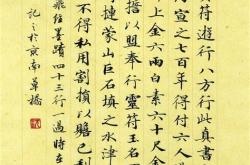 真符遊行八方行此真書
得宣之七百年得付六人
上金六兩白素六十尺金
以盟奉行靈符玉名
蒙山巨石填之水津
不得私用割損以贍己利
飛經墨蹟四十三行一過時在
記之於京南草橋